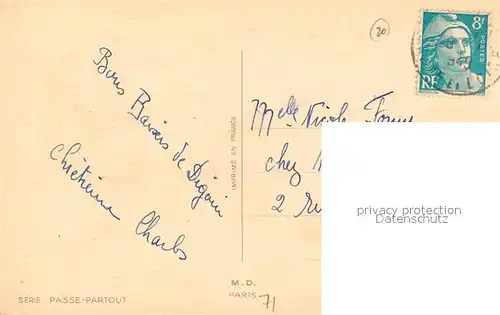 20
8F
POSTES
RF
Bons Baisers de Digoin
Christiane Charles
IMPRIMÉ EN FRANCE
Melle Nicole
chez
2
privacy protection
Datenschutz
M.D.
PARIS
71
SÉRIE PASSE-PARTOUT